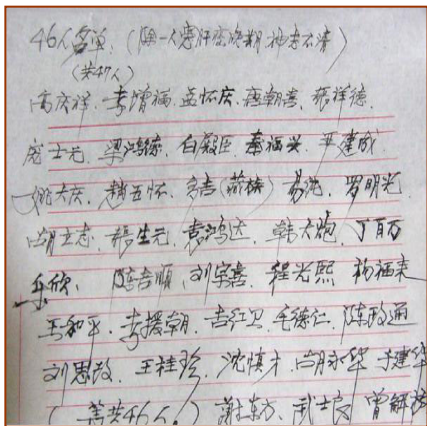 46人名单、(除一人患肝癌晚期神志不清)
(共47人)
高庆祥、李增福、孟怀庆、赵朝善、张祥德、
庞士元、梁鸿儒、白殿臣、秦福兴、平建成
姚大庆、赵五怀、多吉(藏族)、易纯、罗明光、
胡立志、张生元、袁鸿达、韩大炮、丁百万
乐欣、陈吉顺、刘宗喜、程光熙、杨福来
王和平、李援朝、吉红卫、毛德仁、陈政通
刘思政、王桂珍、沈慎才、胡永华、于建华
(共46人。)谢东方、武士良、曾解放